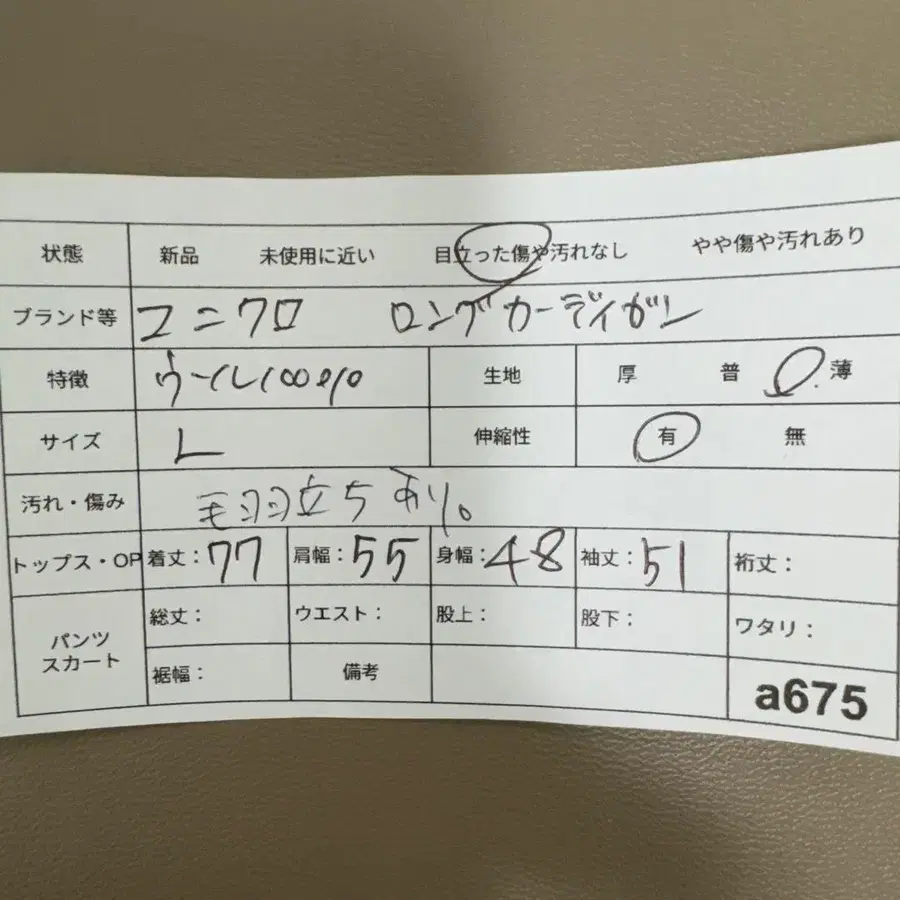 状態 新品 未使用に近い 目立った傷や汚れなし やや傷や汚れあり
ブランド等 ユニクロ ロングカーディガン
特徴 ウール100% 生地 厚 普 薄
サイズ L 伸縮性 有 無
汚れ・傷み 毛羽立ちあり。
トップス・OP 着丈：77 肩幅：55 身幅：48 袖丈：51 裄丈：
パンツ スカート 総丈： ウエスト： 股上： 股下： ワタリ：
裾幅： 備考 a675